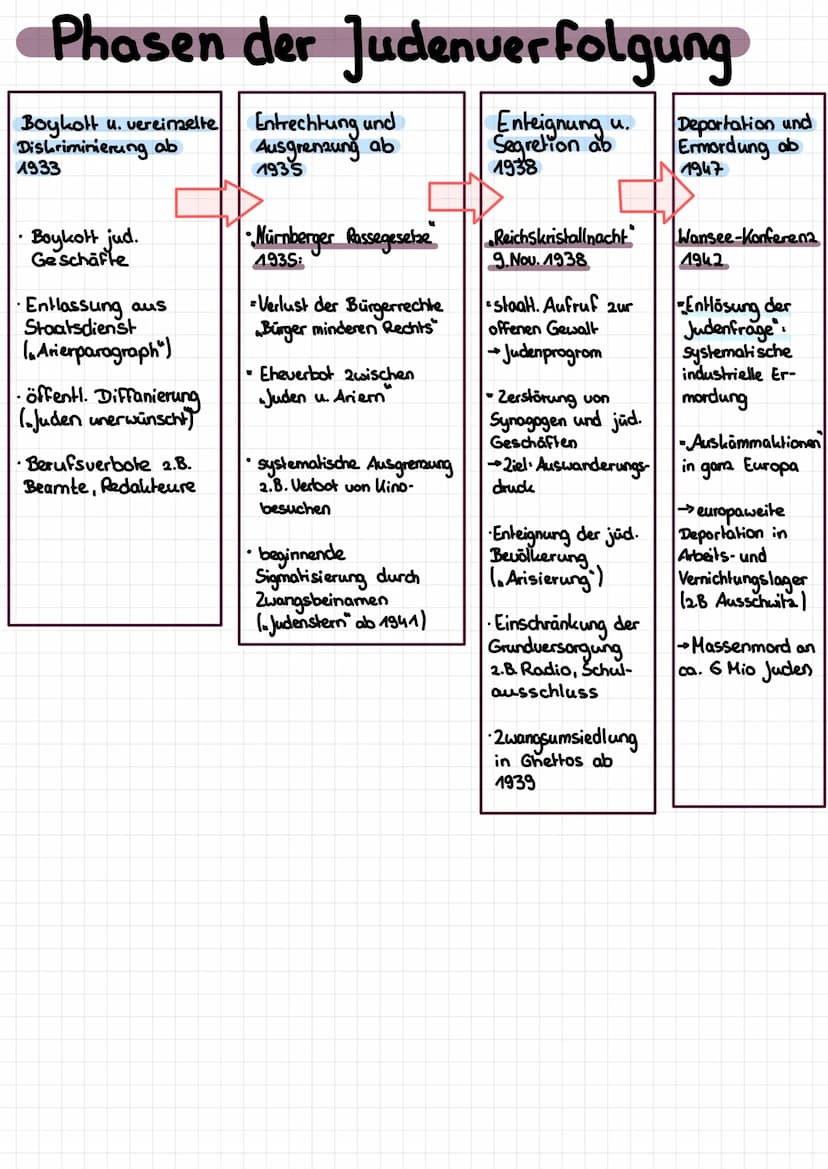 Phasen der Judenverfolgung
Boykott u. vereinzelte
Diskriminierung ab
1933
· Boykott jud.
Geschäfte
· Entlassung aus
Staatsdienst
(„Arierparagraph")
· öffentl. Diffanierung
(„Juden unerwünscht")
· Berufsverbote z.B.
Beamte, Redakteure
Entrechtung und
Ausgrenzung ab
1935
· „Nürnberger Rassegesetze"
1935:
· Verlust der Bürgerrechte
„Bürger minderen Rechts"
· Eheverbot zwischen
„Juden u. Ariern"
· systematische Ausgrenzung
z.B. Verbot von Kino-
besuchen
· beginnende
Sigmatisierung durch
Zwangsbeinamen
(„Judenstern" ab 1941)
Enteignung u.
Segretion ab
1938
„Reichskristallnacht"
9. Nov. 1938
· staatl. Aufruf zur
offenen Gewalt
→ Judenprogrom
· Zerstörung von
Synagogen und jüd.
Geschäften
→ Ziel: Auswanderungs-
druck
· Enteignung der jüd.
Bevölkerung
(„Arisierung")
· Einschränkung der
Grundversorgung
z.B. Radio, Schul-
ausschluss
· Zwangsumsiedlung
in Ghettos ab
1939
Deportation und
Ermordung ab
1947
Wansee-Konferenz
1942
· „Entlösung der
Judenfrage":
systematische
industrielle Er-
mordung
· „Auskämmaktionen"
in ganz Europa
→ europaweite
Deportation in
Arbeits- und
Vernichtungslager
(z.B Ausschwitz)
→ Massenmord an
ca. 6 Mio Juden